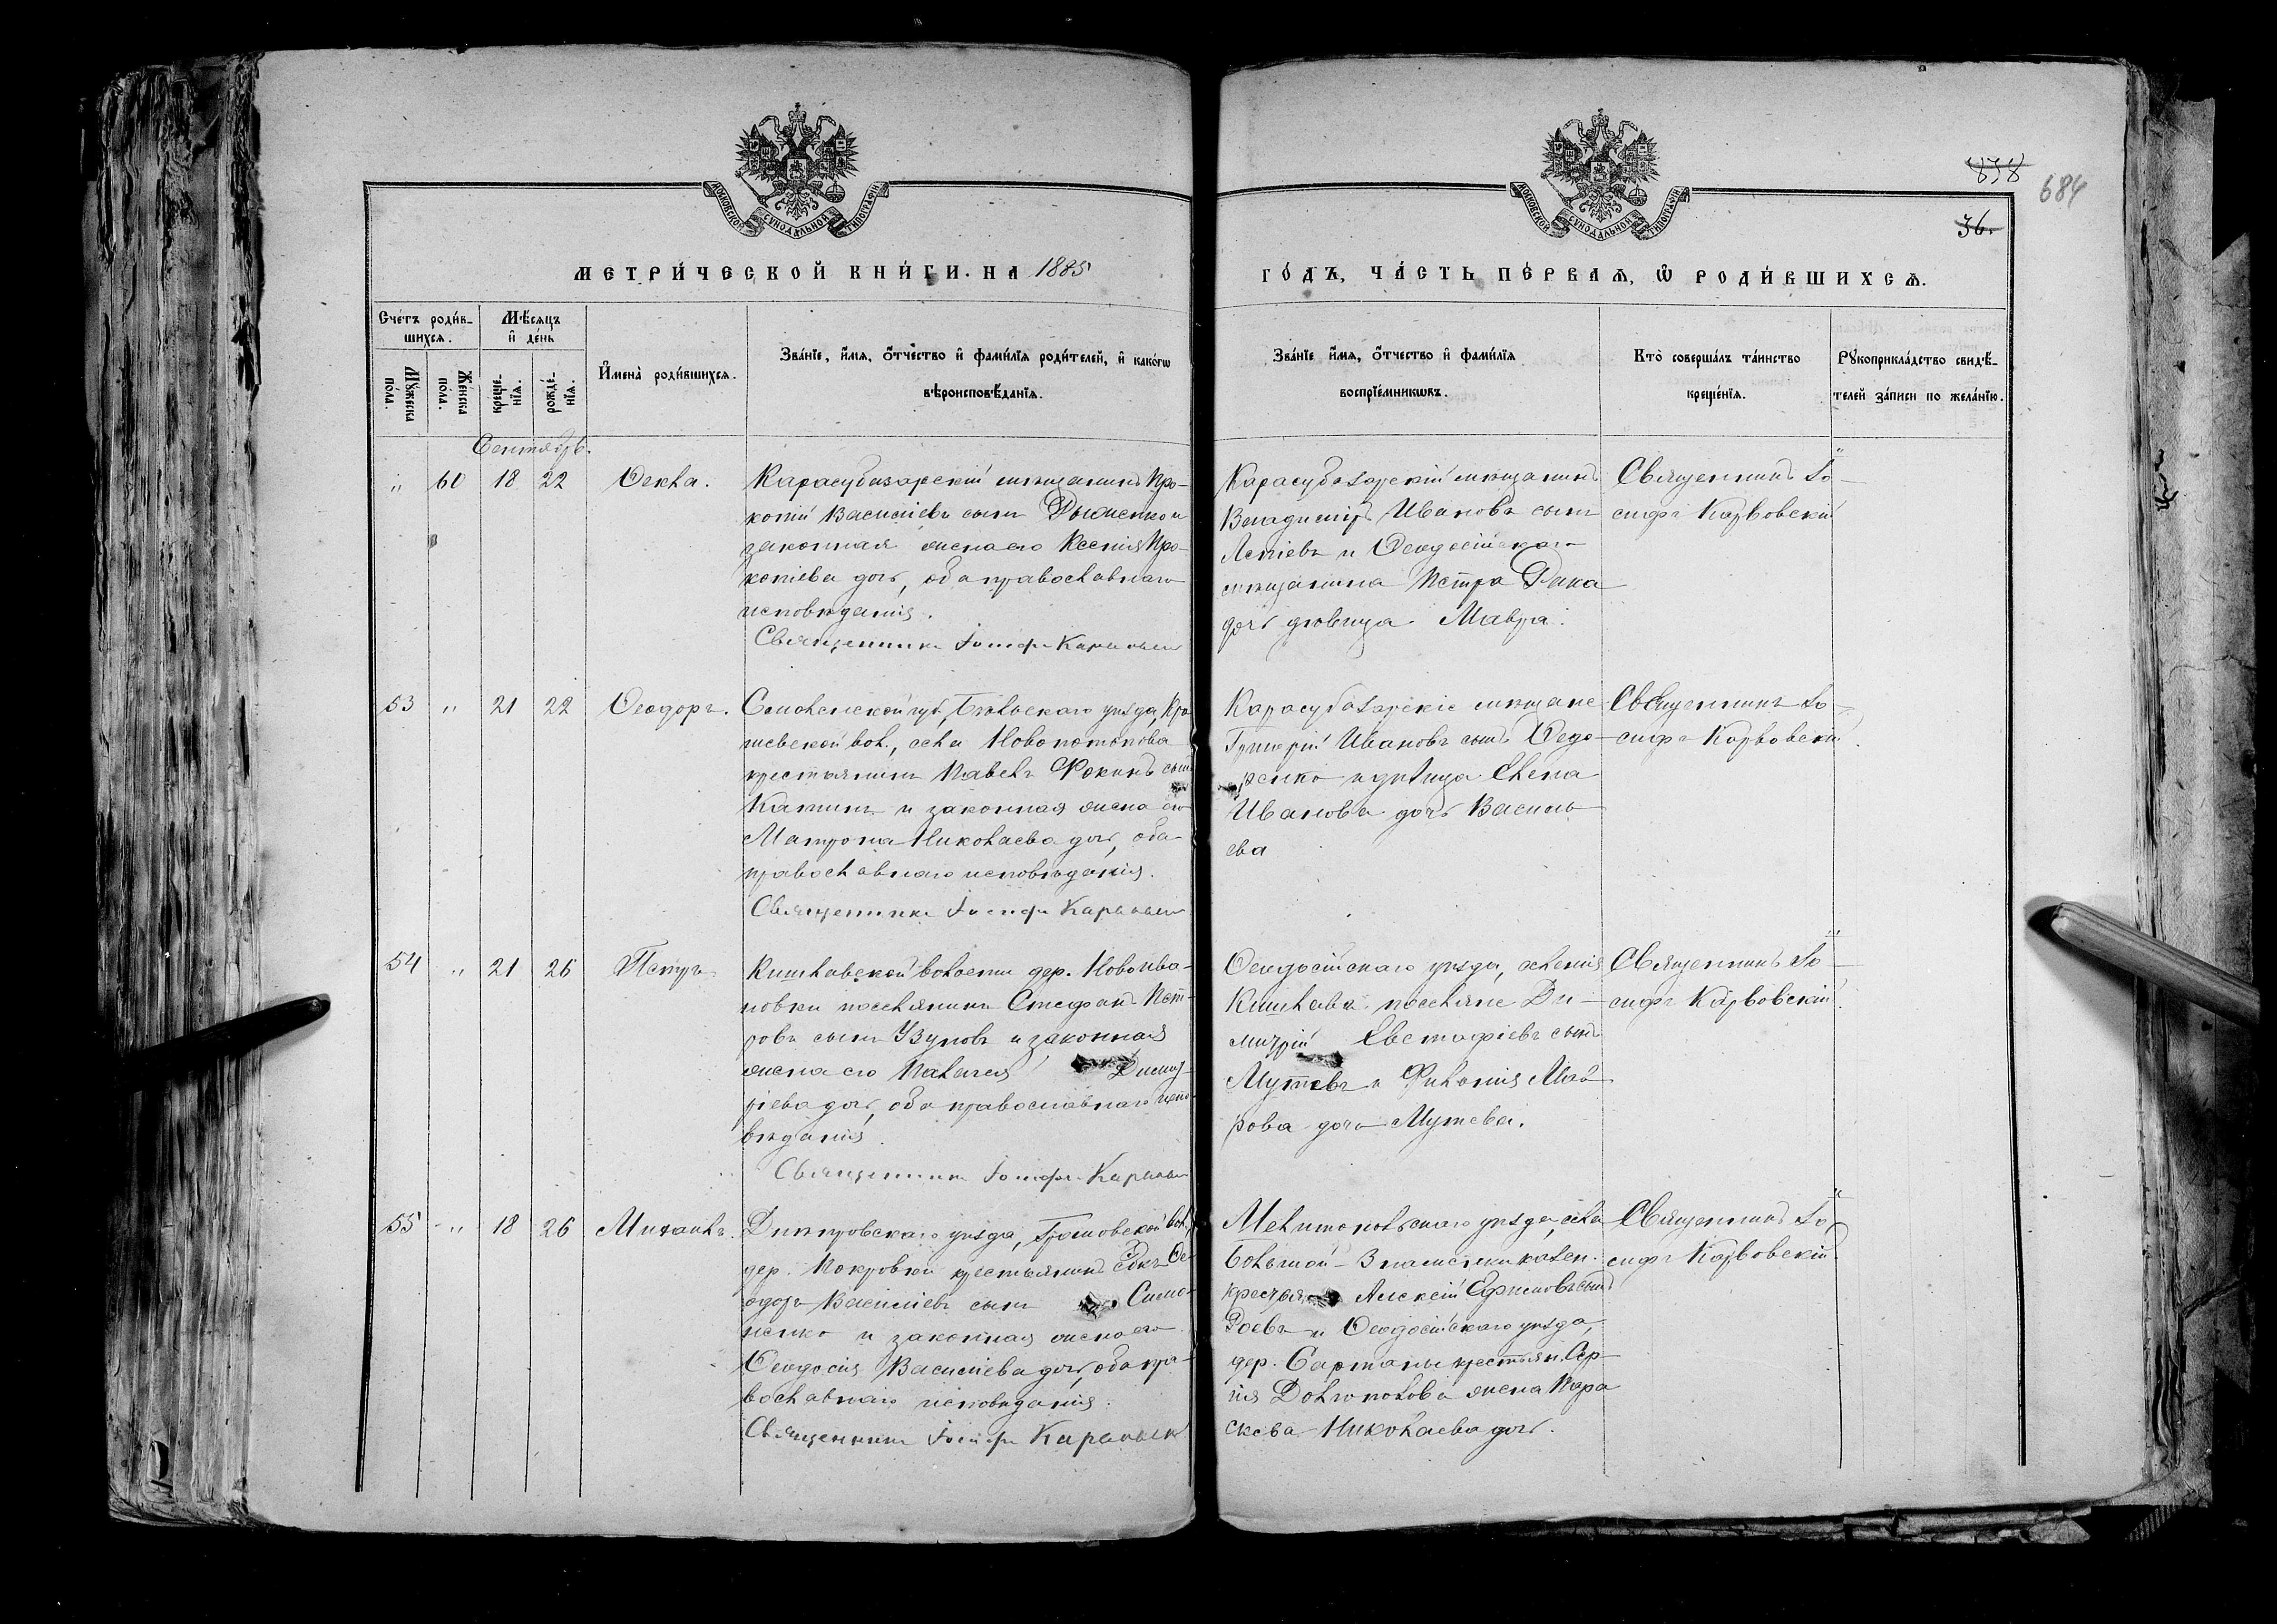 838
684
36.
МОСКОВСКОЙ СУНОДАЛЬНОЙ ТИПОГРАФІИ
МОСКОВСКОЙ СУНОДАЛЬНОЙ ТИПОГРАФІИ
МЕТРИ́ЧЕСКОЙ КНИ́ГИ. НА 1885
ГО́ДЪ, ЧА́СТЬ ПЕ́РВАѦ, Ѡ҆ РОДИ́ВШИХСѦ.
Сче́тъ роди́в-
шихсѧ.
Мѣ́сѧцъ
и҆ де́нь
Мꙋ́жеска по́лꙋ.
Же́нска по́лꙋ.
креще́-
нїѧ.
рожде́-
нїѧ.
И҆мена̀ роди́вшихсѧ.
Зва́нїе, и҆́мѧ, ѻ҆́тчество и҆ фами́лїѧ роди́телей, и҆ како́гѡ
вѣроисповѣ́данїѧ.
Зва́нїе и҆́мѧ, ѻ҆́тчество и҆ фами́лїѧ
воспрїе́мникѡвъ.
Кто̀ соверша́лъ та́инство
креще́нїѧ.
Рꙋкоприкла́дство свидѣ́-
телей за́писи по жела́нїю.
Сентябрь.
" 60 18 22 Ѳекла.
Карасубазарскій мѣщанинъ Про-
копій Василіевъ сынъ Дыженко и
законная жена его Ксенія Про-
копіева дочь, оба православнаго
исповѣданія.
Священникъ Іосифъ Карвовскій
Карасубазарскій мѣщанинъ
Владиміръ Ивановъ сынъ
и Ѳеодосійскаго
мѣщанина Петра
дочь дѣвица Мавра.
Священникъ Іо-
сифъ Карвовскій
53 " 21 22 Ѳеодоръ.
Смоленской губ. Бѣльскаго уѣзда,
вол., села Новопотапова
крестьянинъ Павелъ Фокинъ сынъ
и законная жена его
Матрона Николаева дочь, оба
православнаго исповѣданія.
Священникъ Іосифъ Карвовскій
Карасубазарскіе мѣщане
Григорій Ивановъ сынъ Ѳедо-
ренко и дѣвица Елена
Иванова дочь Василь
ева
Священникъ Іо-
сифъ Карвовскій.
54 " 21 26 Петръ
Кишлавской волости дер. Новоива-
новки поселянинъ Стефанъ Пет-
ровъ сынъ Узуновъ и законная
жена его Пелагея Димит-
ріева дочь, оба православнаго испо-
вѣданія.
Священникъ Іосифъ Карвовскій
Ѳеодосійскаго уѣзда, селенія
Кишлава поселяне Ди-
митрій Евстафіевъ сынъ
Мутевъ и
рова дочь Мутева.
Священникъ Іо-
сифъ Карвовскій.
55 " 18 26 Михаилъ.
Днѣпровскаго уѣзда, Громовской вол.,
дер. Покровки крестьянинъ Ѳе-
одоръ Василіевъ сынъ Симо-
ненко и законная жена его
Ѳеодосія Василіева дочь, оба пра-
вославнаго исповѣданія.
Священникъ Іосифъ Карвовскій
Мелитопольскаго уѣзда, села
Большой-Знаменки казен.
Алексій Ефимовъ сынъ
и Ѳеодосійскаго уѣзда,
дер. Сартаны крестьян. Сер-
гія Долгополова жена Пара
скева Николаева дочь.
Священникъ Іо-
сифъ Карвовскій.